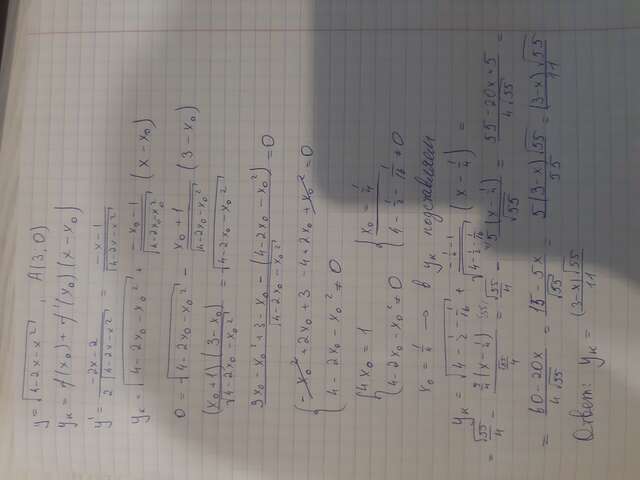 y = √(4-2x-x²) , A(3,0)
yк = f(x₀) + f'(x₀)(x-x₀)
y' = (-2x-2)/(2√(4-2x-x²)) = (-x-1)/√(4-2x-x²)
yк = √(4-2x₀-x₀²) + (-x₀-1)/√(4-2x₀-x₀²) (x-x₀)
0 = √(4-2x₀-x₀²) - (x₀+1)/√(4-2x₀-x₀²) (3-x₀)
(x₀+1)(3-x₀)/√(4-2x₀-x₀²) = √(4-2x₀-x₀²)
(3x₀-x₀²+3-x₀-(4-2x₀-x₀²))/√(4-2x₀-x₀²) = 0
{ -x₀²+2x₀+3-4+2x₀+x₀² = 0
4-2x₀-x₀² ≠ 0
{ 4x₀ = 1 { x₀ = 1/4
4-2x₀-x₀² ≠ 0 4-1/2-1/16 ≠ 0
x₀ = 1/4 → в yк подставляем
yк = √(4-1/2-1/16) + (-1/4-1)/√(4-1/2-1/16) (x-1/4) =
= √55/4 - (5/4(x-1/4))/(√55/4) = √55/4 - 5(x-1/4)/√55 = (55-20x+5)/(4√55) =
= (60-20x)/(4√55) = (15-5x)/√55 = 5(3-x)√55/55 = (3-x)√55/11
Ответ: yк = (3-x)√55/11